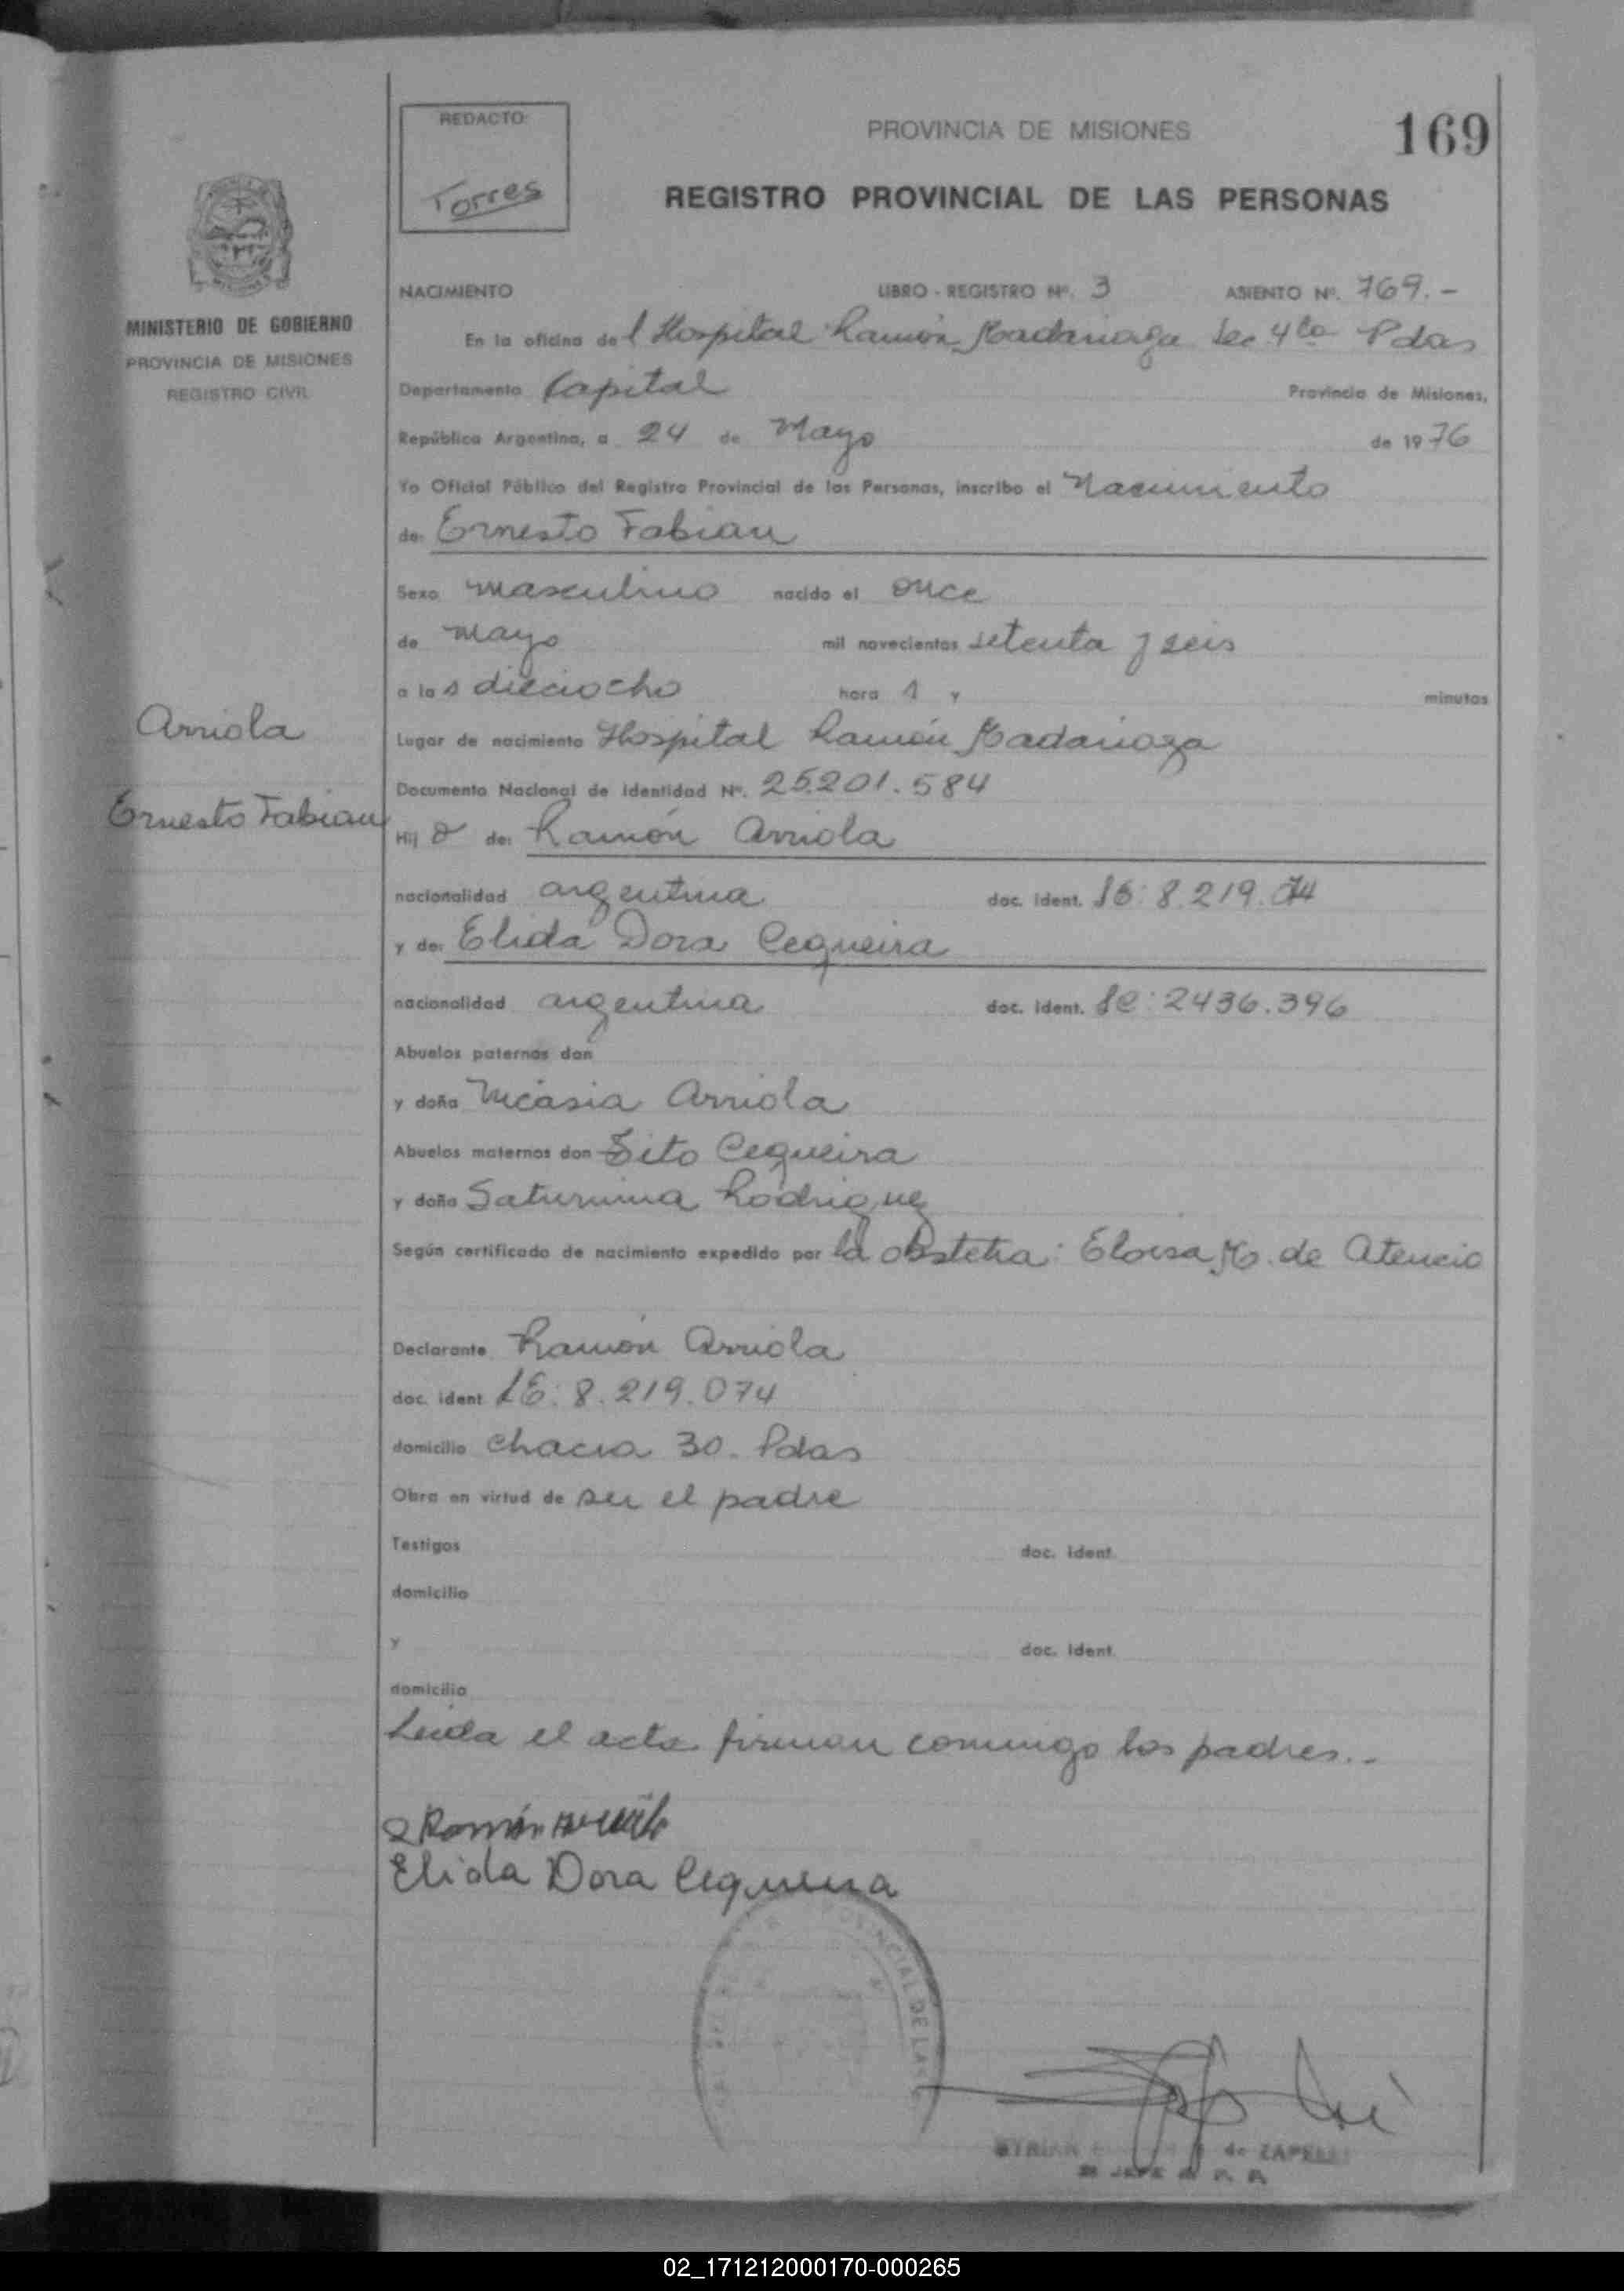 169
REDACTO:
Torres
PROVINCIA DE MISIONES
REGISTRO PROVINCIAL DE LAS PERSONAS
MINISTERIO DE GOBIERNO
PROVINCIA DE MISIONES
REGISTRO CIVIL
NACIMIENTO LIBRO - REGISTRO Nº. 3 ASIENTO Nº. 769.-
En la oficina del Hospital Ramón Madariaga Sec 4ta Pdas
Departamento Capital Provincia de Misiones,
República Argentina, a 24 de Mayo de 1976
Yo Oficial Público del Registro Provincial de las Personas, inscribo el Nacimiento
de: Ernesto Fabian
Sexo masculino nacido el once
de mayo mil novecientos setenta y seis
a las dieciocho hora s y minutos
Arriola
Lugar de nacimiento Hospital Ramón Madariaga
Documento Nacional de identidad Nº. 25.201.584
Ernesto Fabian
Hijo de: Ramón Arriola
nacionalidad argentina doc. ident. LE: 8.219.074
y de: Elida Dora Cequeira
nacionalidad argentina doc. ident. LC: 2436.396
Abuelos paternos don
y doña Nicasia Arriola
Abuelos maternos don Sito Cequeira
y doña Saturnina Rodriguez
Según certificado de nacimiento expedido por la obstetra: Eloisa M. de Atencio
Declarante Ramón Arriola
doc. ident LE: 8.219.074
domicilio Chacra 30. Pdas
Obra en virtud de ser el padre
Testigos doc. ident.
domicilio
y doc. ident.
domicilio
Leida el acta firman conmigo los padres..-
Ramón
Elida Dora Cequeira
PROVINCIAL DE LAS
de ZAPELLI
JEFE
02_171212000170-000265